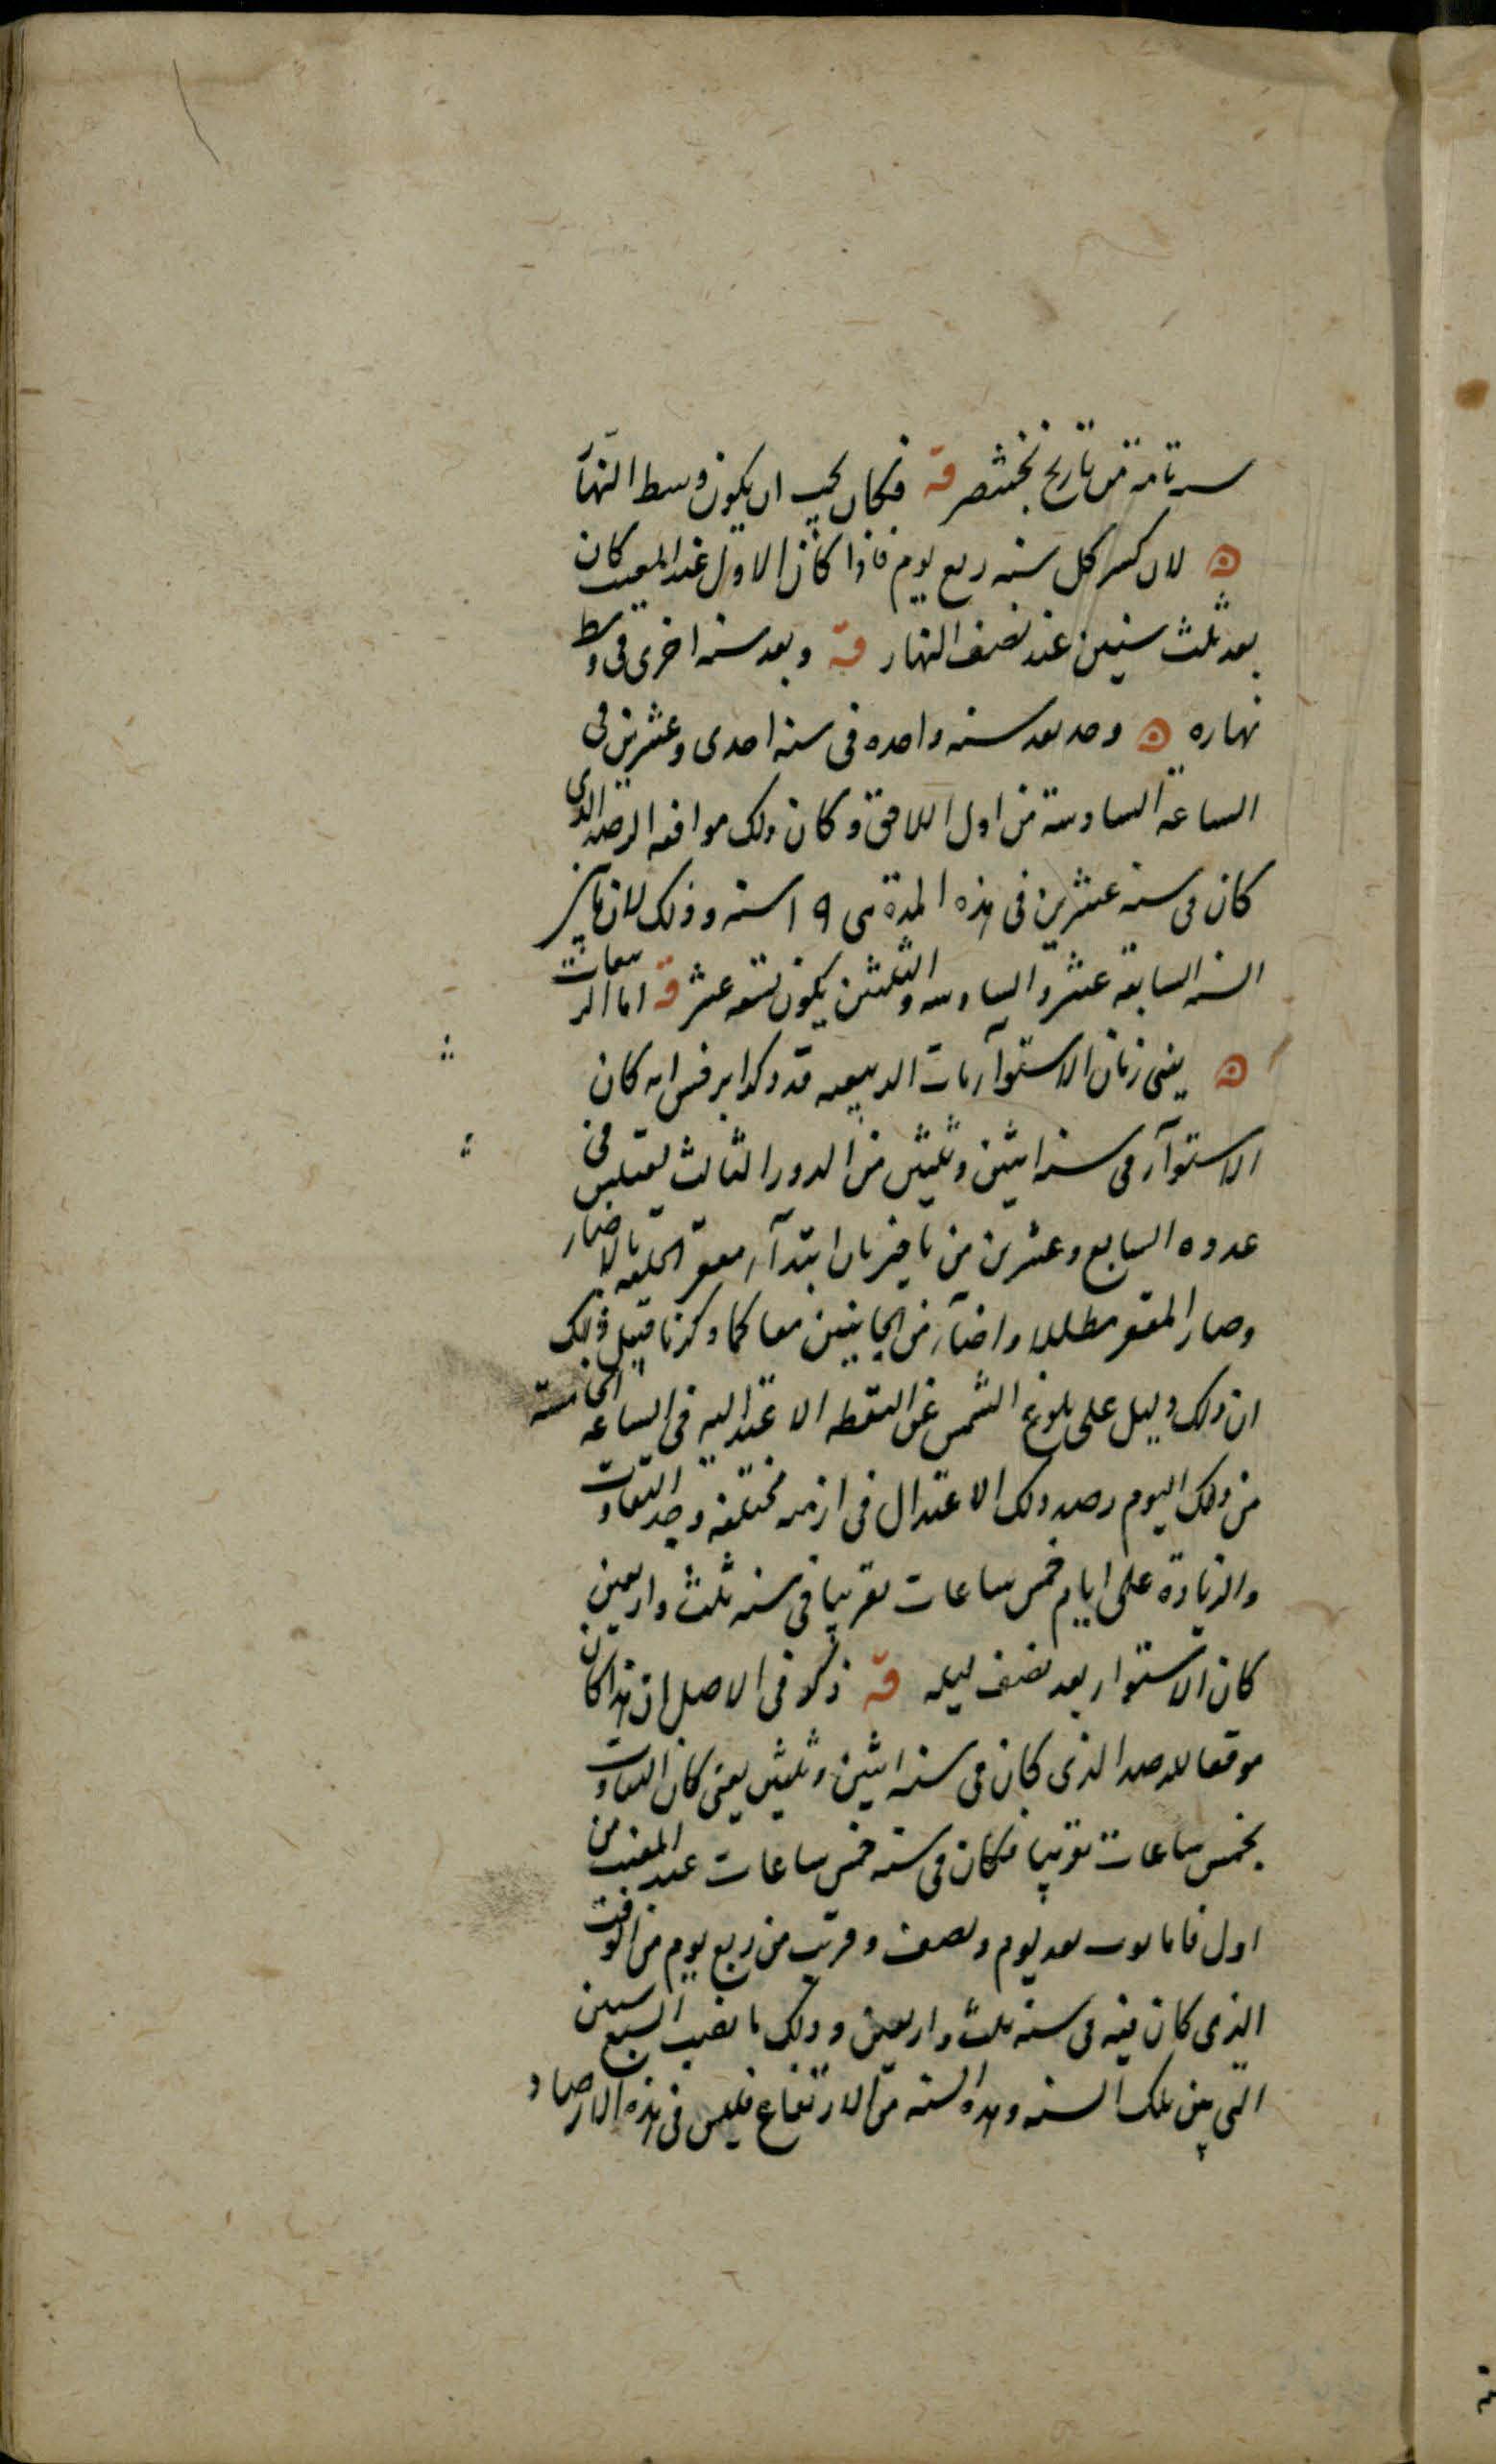 سنه تامة من تاريخ بختنصر قه فكان يجب ان يكون وسط النهار
لان كسر كل سنه ربع يوم فاذا كان الاول عند المغيب كان
بعد ثلث سنين عند نصف النهار قه وبعد سنه اخرى فى وسط
نهاره وجد بعد سنه واحده فى سنه احدى وعشرين فى
الساعة السادسة من اول اللاحق وكان ذلك موافقه الرصد الذى
كان فى سنه عشرين فى هذه المدة هى ١٩ سنه وذلك لان مابين
السنه السابعة عشر والسادسه والثلثين يكون تسعه عشر قه اما الربيعات
يعنى زمان الاستوآءات الربيعيه قد ذكر ابرخس انه كان
الاستوآء فى سنه اثنين وثلثين من الدور الثالث لقيلبس فى
عدده السابع وعشرين من ماخير بان ابتدآء مقعر الحلقه بالاضاء
وصار المقعر مظللا واضآء من الجانبين معا كما ذكرنا قبل ذلك
ان ذلك دليل على بلوغ الشمس عن النقطه الاعتداليه فى الساعه الخامسة
من ذلك اليوم رصد ذلك الاعتدال فى ازمنه مختلفه وجد التفاوت
والزيادة على ايام خمس ساعات تقريبا فى سنه ثلث واربعين
كان الاستواء بعد نصف ليله قه ذكر فى الاصل ان هذا كان
موقعا للرصد الذى كان فى سنه اثنين وثلثين يعنى كان التفاوت
بخمس ساعات تقريبا فكان فى سنه خمس ساعات عند المغيب من
اول فاما بعد يوم ونصف وقريب من ربع يوم من الوقت
الذى كان فيه فى سنه ثلث واربعين وذلك ما نصيب السبع سنين
التى بين تلك السنه وهذه السنه من الارتفاع فليس فى هذه الارصاد